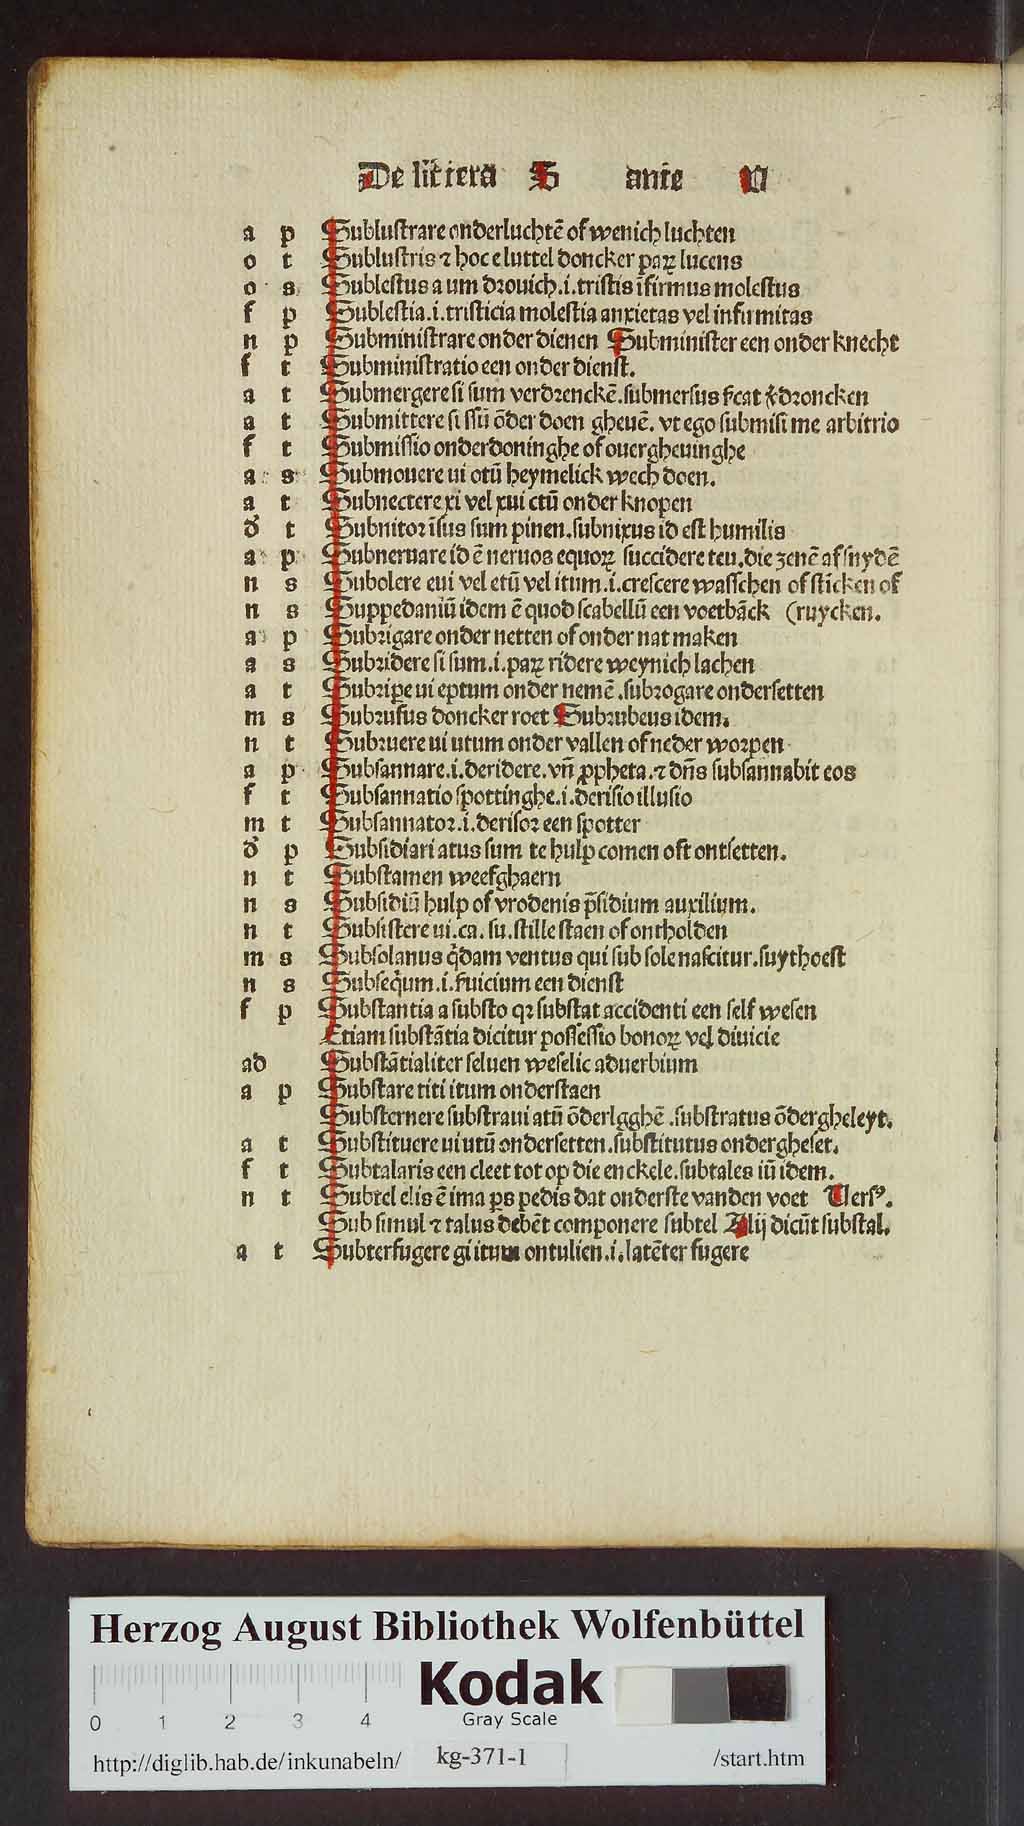 De littera S ante V
a p Sublustrare onderluchtē of wenich luchten
o t Sublustris ⁊ hoc e luttel doncker paꝝ lucens
o s Sublestus a um drouich .i. tristis īfirmus molestus
f p Sublestia .i. tristicia molestia anxietas vel infirmitas
n p Subministrare onder dienen Subminister een onder knecht
f t Subministratio een onder dienst.
a t Submergere si sum verdrenckē. submersus droncken
a t Submittere si ssū ōder doen gheuē. vt ego submisi me arbitrio
f t Submissio onderdoninghe of ouergheuinghe
a s Submouere ui otū heymelick wech doen.
a t Subnectere xi vel xui ctū onder knopen
đ t Subnitor īsus sum pinen. subnixus id est humilis
a p Subneruare id ē neruos equoꝝ succidere teu. die zenē af snydē
n s Subolere eui vel etū vel itum .i. crescere wasschen of stincken of
n s Suppedaniū idem ē quod scabellū een voetbāck (ruycken.
a p Subrigare onder netten of onder nat maken
a s Subridere si sum .i. paꝝ ridere weynich lachen
a t Subripe ui eptum onder nemē. subrogare ondersetten
m s Subrufus doncker roet Subrubeus idem.
n t Subruere ui utum onder vallen of neder worpen
a p Subsannare .i. deridere. vn̄ ꝓpheta. ⁊ dn̄s subsannabit eos
f t Subsannatio spottinghe .i. derisio illusio
m t Subsannator .i. derisor een spotter
đ p Subsidiari atus sum te hulp comen oft ontsetten.
n t Substamen weefghaern
n s Subsidiū hulp of vrodenis p̄sidium auxilium.
n t Subsistere ui. ca. su. stille staen of ontholden
m s Subsolanus q̄dam ventus qui sub sole nascitur. suythoest
n s Subseq̄um .i. ẜuicium een dienst
f p Substantia a substo qꝛ substat accidenti een self wesen
Etiam substātia dicitur possessio bonoꝝ vel diuicie
ad Substātialiter seluen weselic aduerbium
a p Substare titi itum onderstaen
Substernere substraui atū ōderlgghē. substratus ōdergheleyt.
a t Substituere ui utū ondersetten. substitutus ondergheset.
f t Subtalaris een cleet tot op die enckele. subtales iū idem.
n t Subtel elis ē ima ꝑs pedis dat onderste vanden voet Versꝰ.
Sub simul ⁊ talus debēt componere subtel Alij dicūt substal.
a t Subterfugere gi itum ontulien .i. latēter fugere
Herzog August Bibliothek Wolfenbüttel
Kodak
Gray Scale
0 1 2 3 4
http://diglib.hab.de/inkunabeln/ kg-371-1 /start.htm